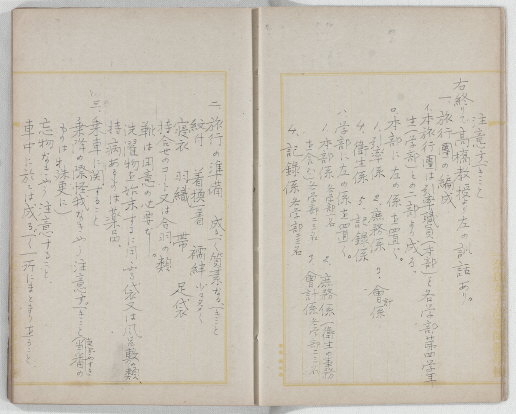 注意すべきこと
右終りて高橋教授より左の訓話あり。
一、旅行團の編成
イ、本旅行團は引率職員(本部)と各学部第四学年
生(学部)との二部より成る。
ロ、本部に左の係を置く。
1. 引率係 2. 庶務係 3. 会計係
4. 衛生係 5. 記録係
ハ、学部に左の係を置く。
1. 本部係 各学部 2. 庶務係(衛生の事務
を含む)各学部 3. 會計係 各学部
4. 記録係 各学部
二、旅行の準備 成るべく簡素なるべきこと
紋付 着換一着 襦袢
寝衣 羽織 帯 足袋
持合せのコート又は合羽の類
靴は用意の必要なし。
洗濯物を始末するに同ふ袋又は風呂敷の類、
持病あるものは薬品、
三、乗車に関すること
乗降の際怪我なきやう注意すべきこと
忘物なきやう注意すること
車中に於ては成るべく一所にまとまり在ること、